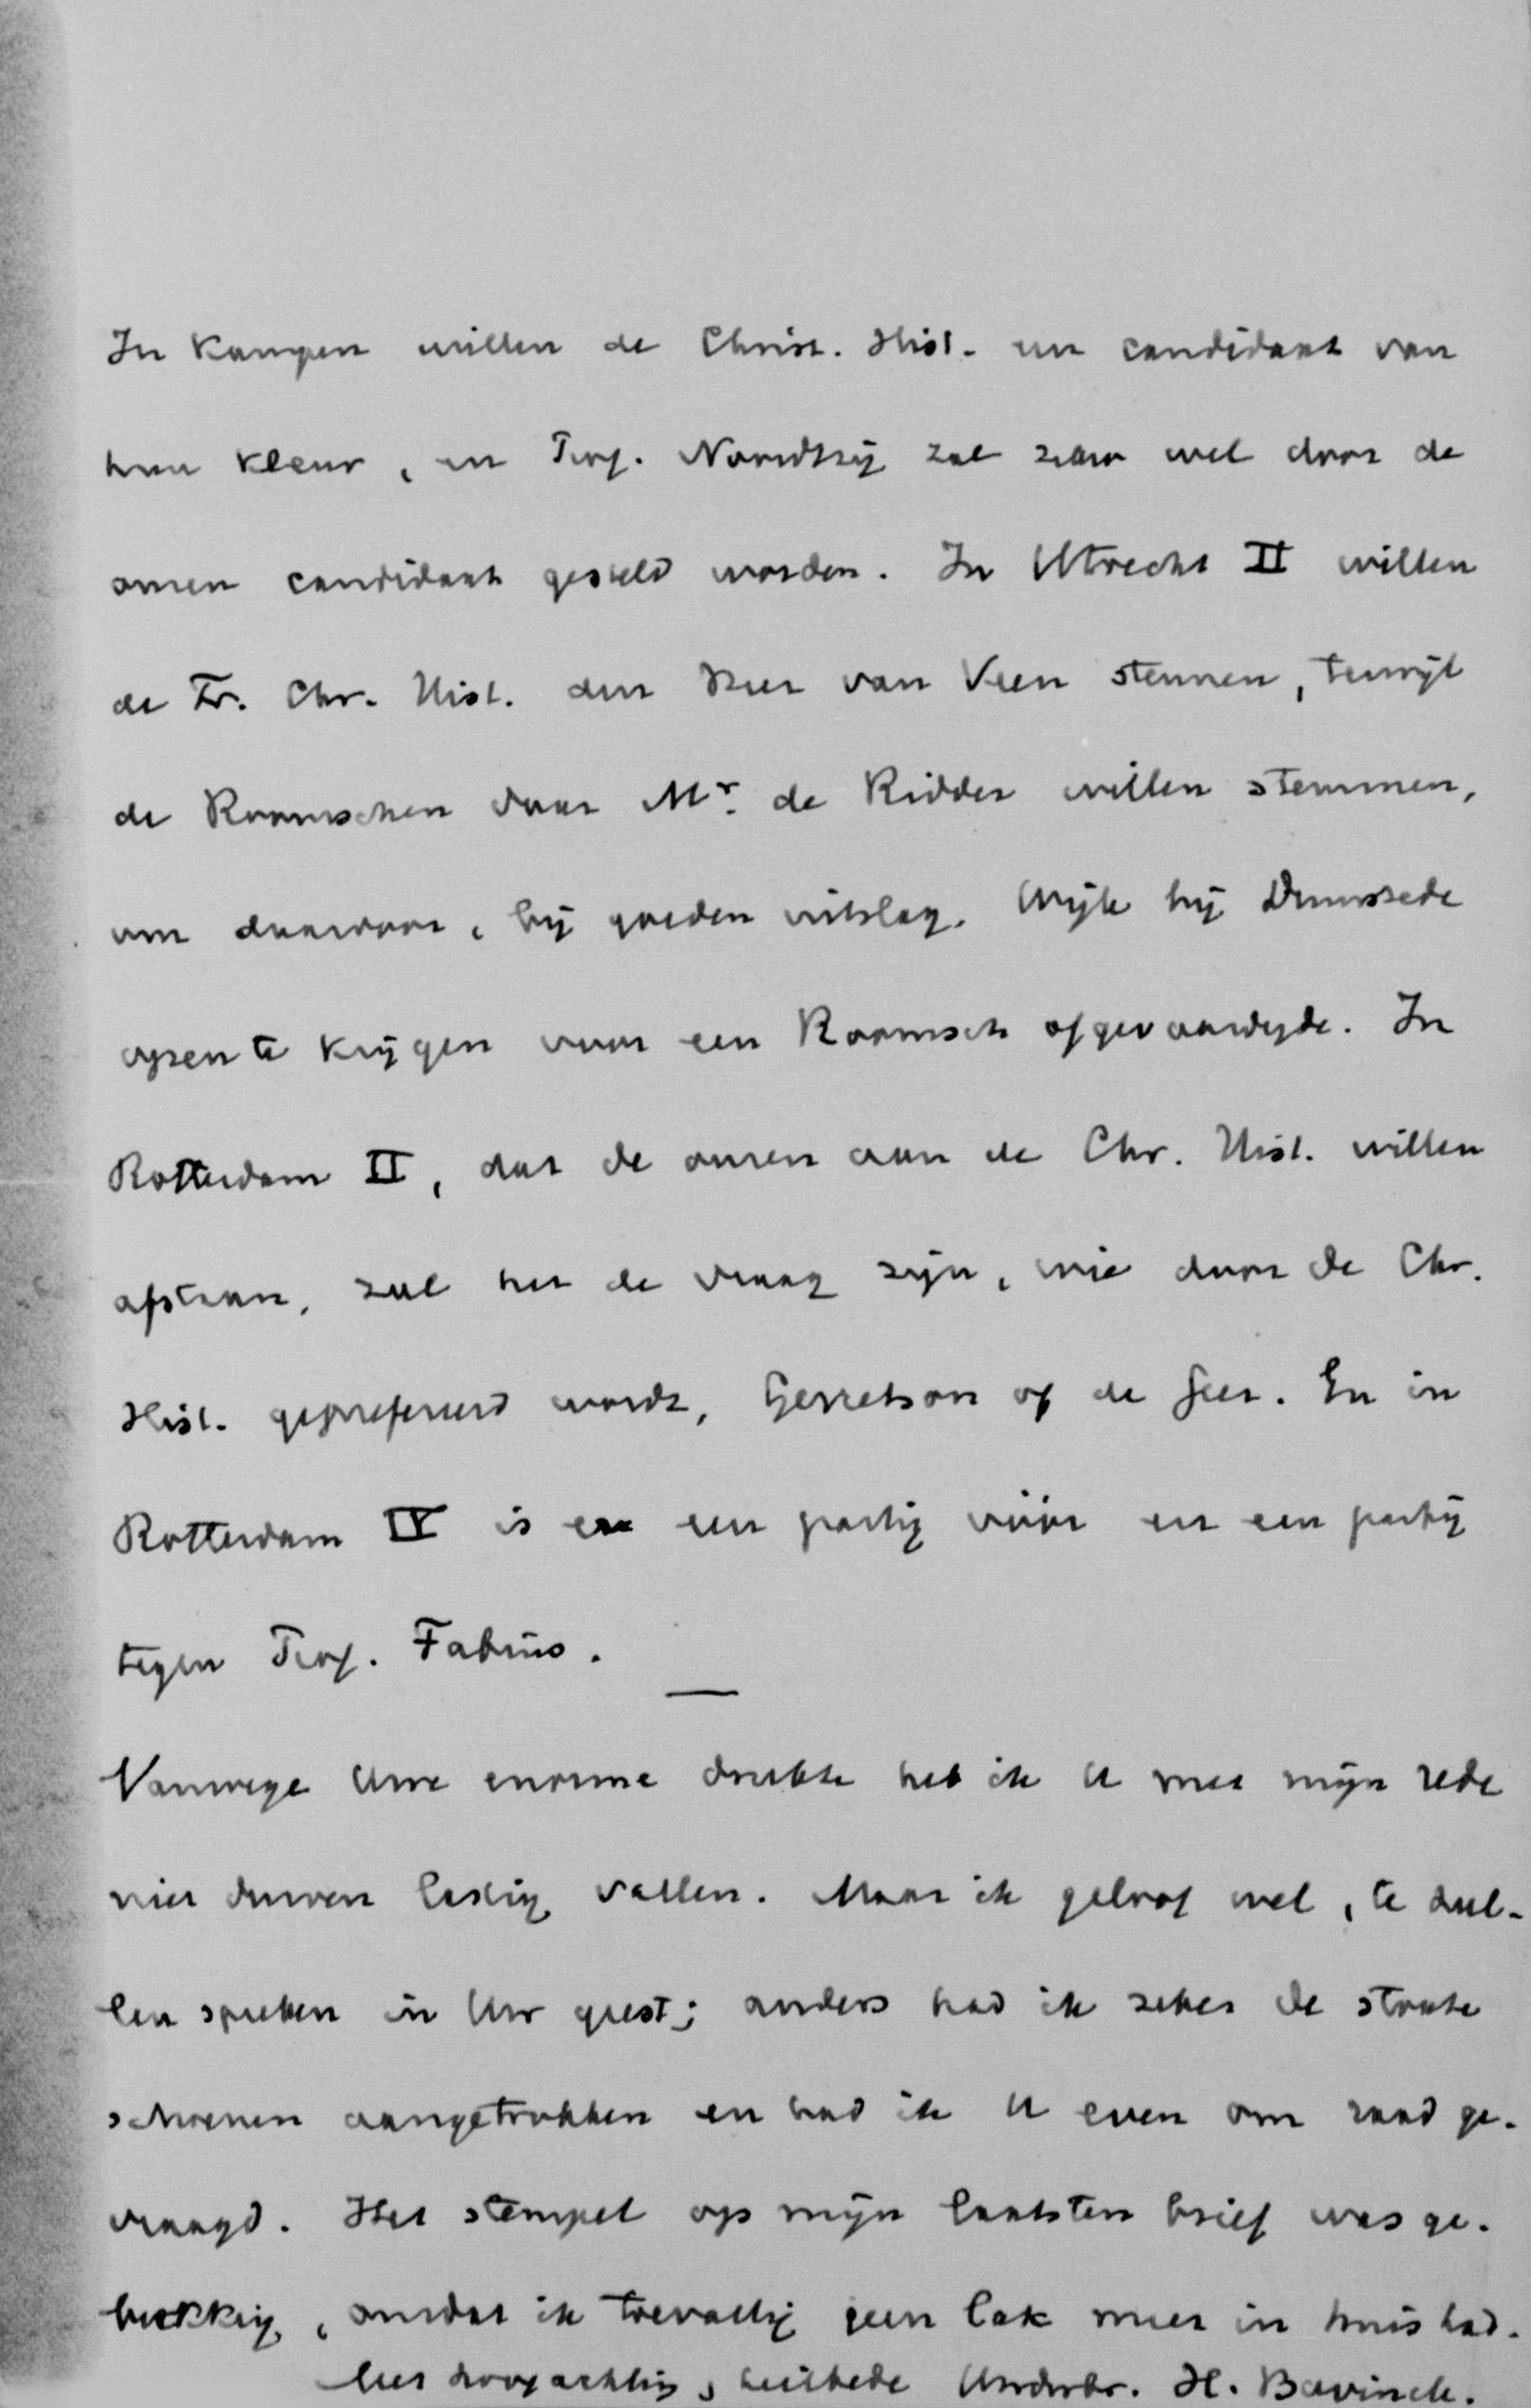 In Kampen willen de Christ. Hist. een candidaat van
hun kleur, en Prof. Noordtzij zal daar wel door de
onzen candidaat gesteld worden. In Utrecht II willen
de Fr. Chr. Hist. den Heer van Veen steunen, terwijl
de Roomschen voor Mr. de Ridder willen stemmen,
om daarvoor, bij goeden uitslag, Wijk bij Duurstede
open te krijgen voor een Roomsch afgevaardigde. In
Rotterdam II, dat de onzen aan de Chr. Hist. willen
afstaan, zal het de vraag zijn, wie door de Chr.
Hist. geprefereerd wordt, Gerretson of de Geer. En in
Rotterdam IV is er een partij vóór en een partij
tegen Prof. Fabius.
Vanwege Uwe enorme drukte heb ik U met mijn rede
niet durven lastig vallen. Maar ik geloof wel, te zul-
len spreken in Uw geest; anders had ik zeker de stoute
schoenen aangetrokken en had ik U even om raad ge-
vraagd. Het stempel op mijn laatsten brief was ge-
brekkig, omdat ik toevallig geen lak meer in huis had.
Met hoogachting, heilbede Uw dw br. H. Bavinck.